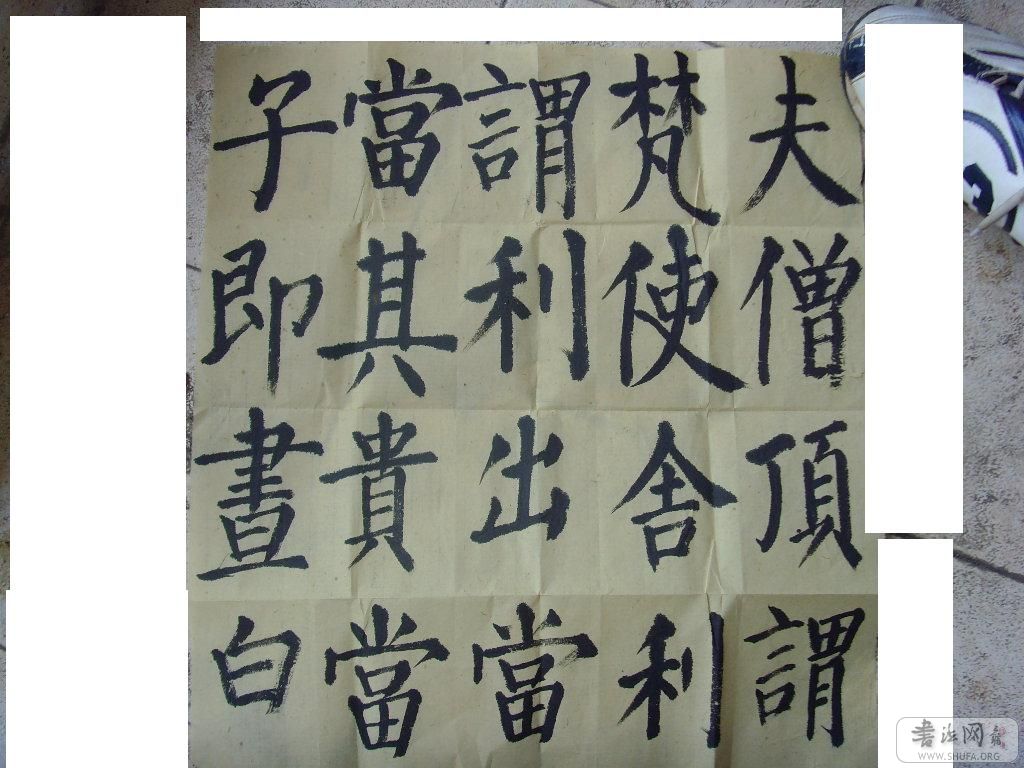 夫僧頂謂
梵使舍利
謂利出當
當其貴當
子即晝白
书法网
WWW.SHUFA.ORG